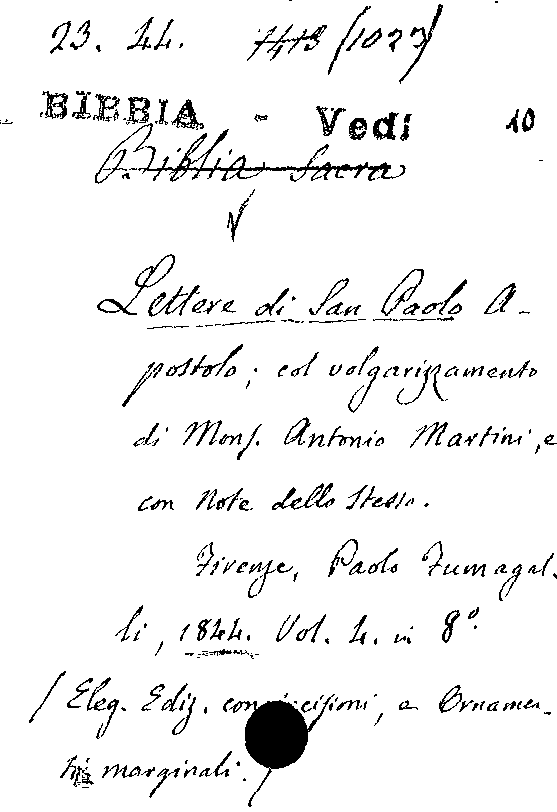 23. 44. 7413 (1027)
BIBBIA - Vedi 10
Biblia Sacra
Lettere di San Paolo A-
postolo; col volgarizzamento
di Mons. Antonio Martini, e
con Note dello Stesso.
Firenze, Paolo Fumagal-
li, 1844. Vol. 4. in 8º.
(Eleg. Ediz. con incisioni, e Ornamen-
ti marginali.)